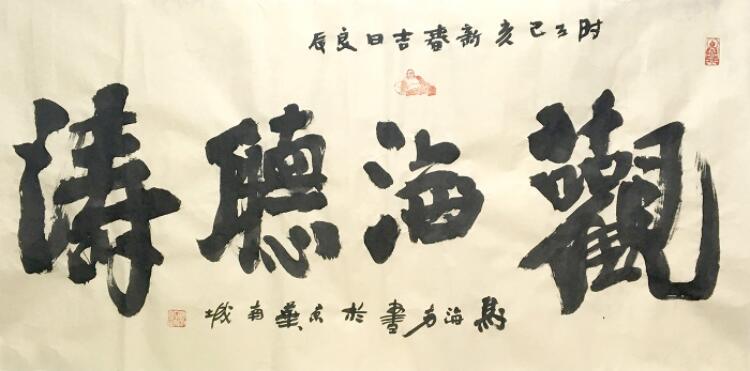 时在己亥新春吉日良辰
觀海聽濤
馬海方書於京華南城